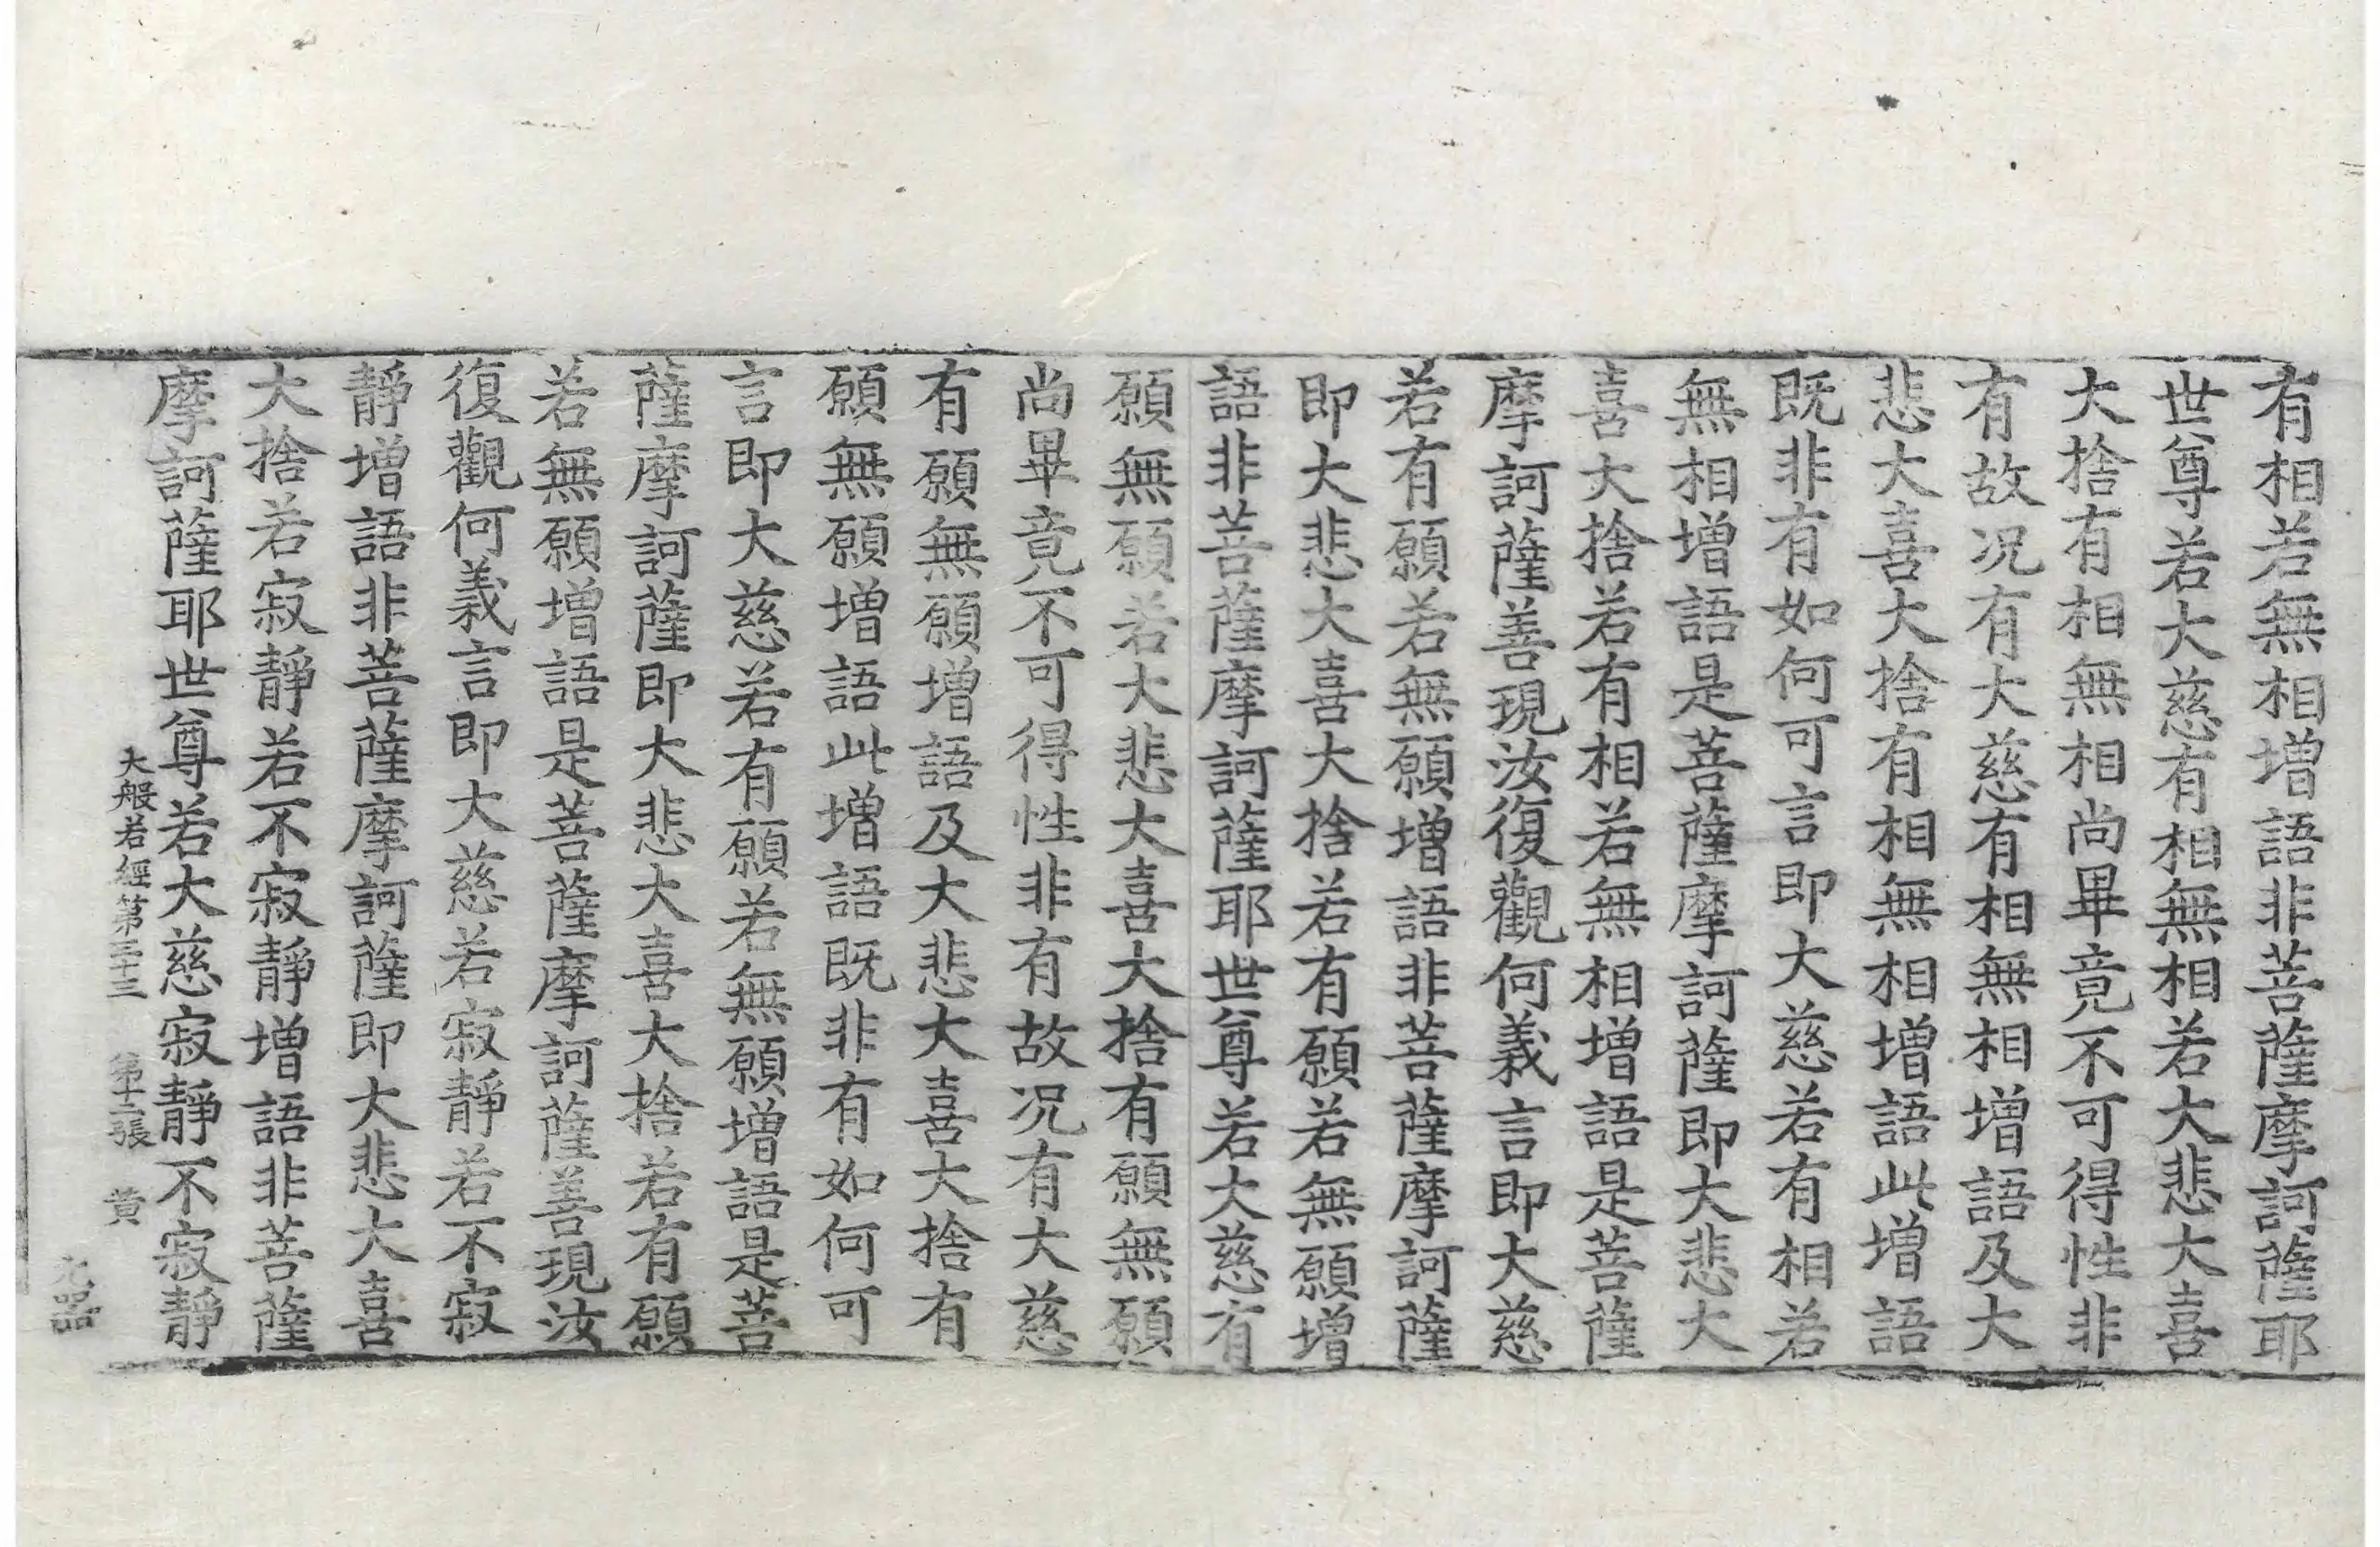 有相若無相增語非菩薩摩訶薩耶
世尊若大慈有相無相若大悲大喜
大捨有相無相尚畢竟不可得性非
有故况有大慈有相無相增語及大
悲大喜大捨有相無相增語此增語
既非有如何可言即大慈若有相若
無相增語是菩薩摩訶薩即大悲大
喜大捨若有相若無相增語是菩薩
摩訶薩善現汝復觀何義言即大慈
若有願若無願增語非菩薩摩訶薩
即大悲大喜大捨若有願若無願增
語非菩薩摩訶薩耶世尊若大慈有
願無願若大悲大喜大捨有願無願
尚畢竟不可得性非有故况有大慈
有願無願增語及大悲大喜大捨有
願無願增語此增語既非有如何可
言即大慈若有願若無願增語是菩
薩摩訶薩即大悲大喜大捨若有願
若無願增語是菩薩摩訶薩善現汝
復觀何義言即大慈若寂靜若不寂
靜增語非菩薩摩訶薩即大悲大喜
大捨若寂靜若不寂靜增語非菩薩
摩訶薩耶世尊若大慈寂靜不寂靜
大般若經第三十三 第十二張 黃